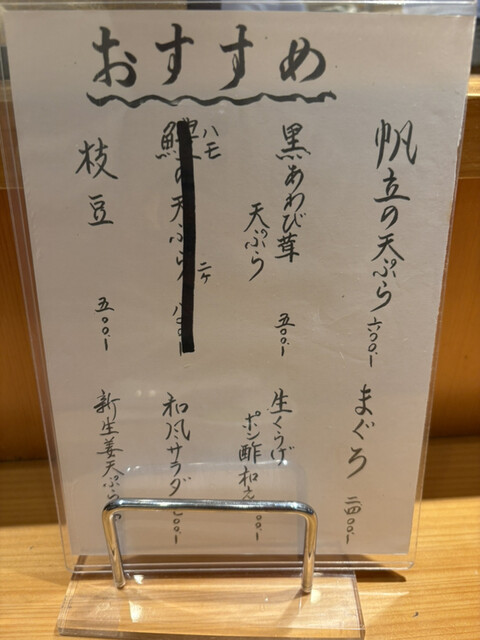 おすすめ
帆立の天ぷら 六〇〇.ー
黒あわび茸
天ぷら 五〇〇.ー
ハモ
の天ぷら 二ケ 八〇〇.ー
枝豆 五〇〇.ー
まぐろ 二四〇〇.ー
生くらげ
ポン酢和え 〇〇.ー
和風サラダ 〇〇.ー
新生姜天ぷら